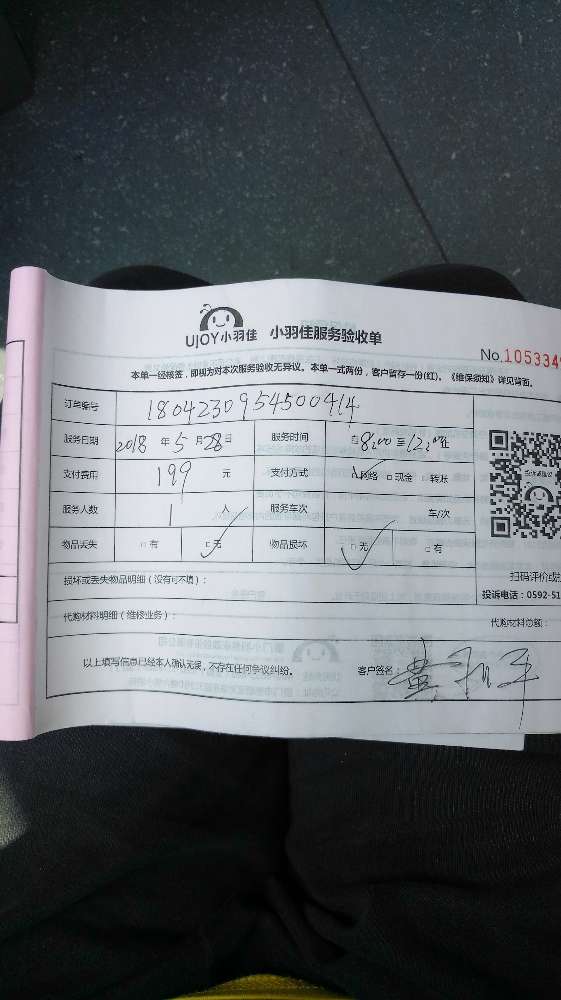 UJOY小羽佳 小羽佳服务验收单
No.105334
本单一经核签，即视为对本次服务验收无异议。本单一式两份，客户留存一份(红)。《维保须知》详见背面。
订单编号 1804230954500414
服务日期 2018 年 5 月 28 日 服务时间 自 8:00 至 12:00 止
支付费用 199 元 支付方式 网络 □现金 □转账
服务人数 1 人 服务车次 车/次
物品丢失 □有 □无 物品损坏 □无 □有
扫码评价或
损坏或丢失物品明细（没有可不填）：
投诉电话：0592-51
代购材料明细（维修业务）：
代购材料总额：
以上填写信息已经本人确认无误，不存在任何争议纠纷。 客户签名：